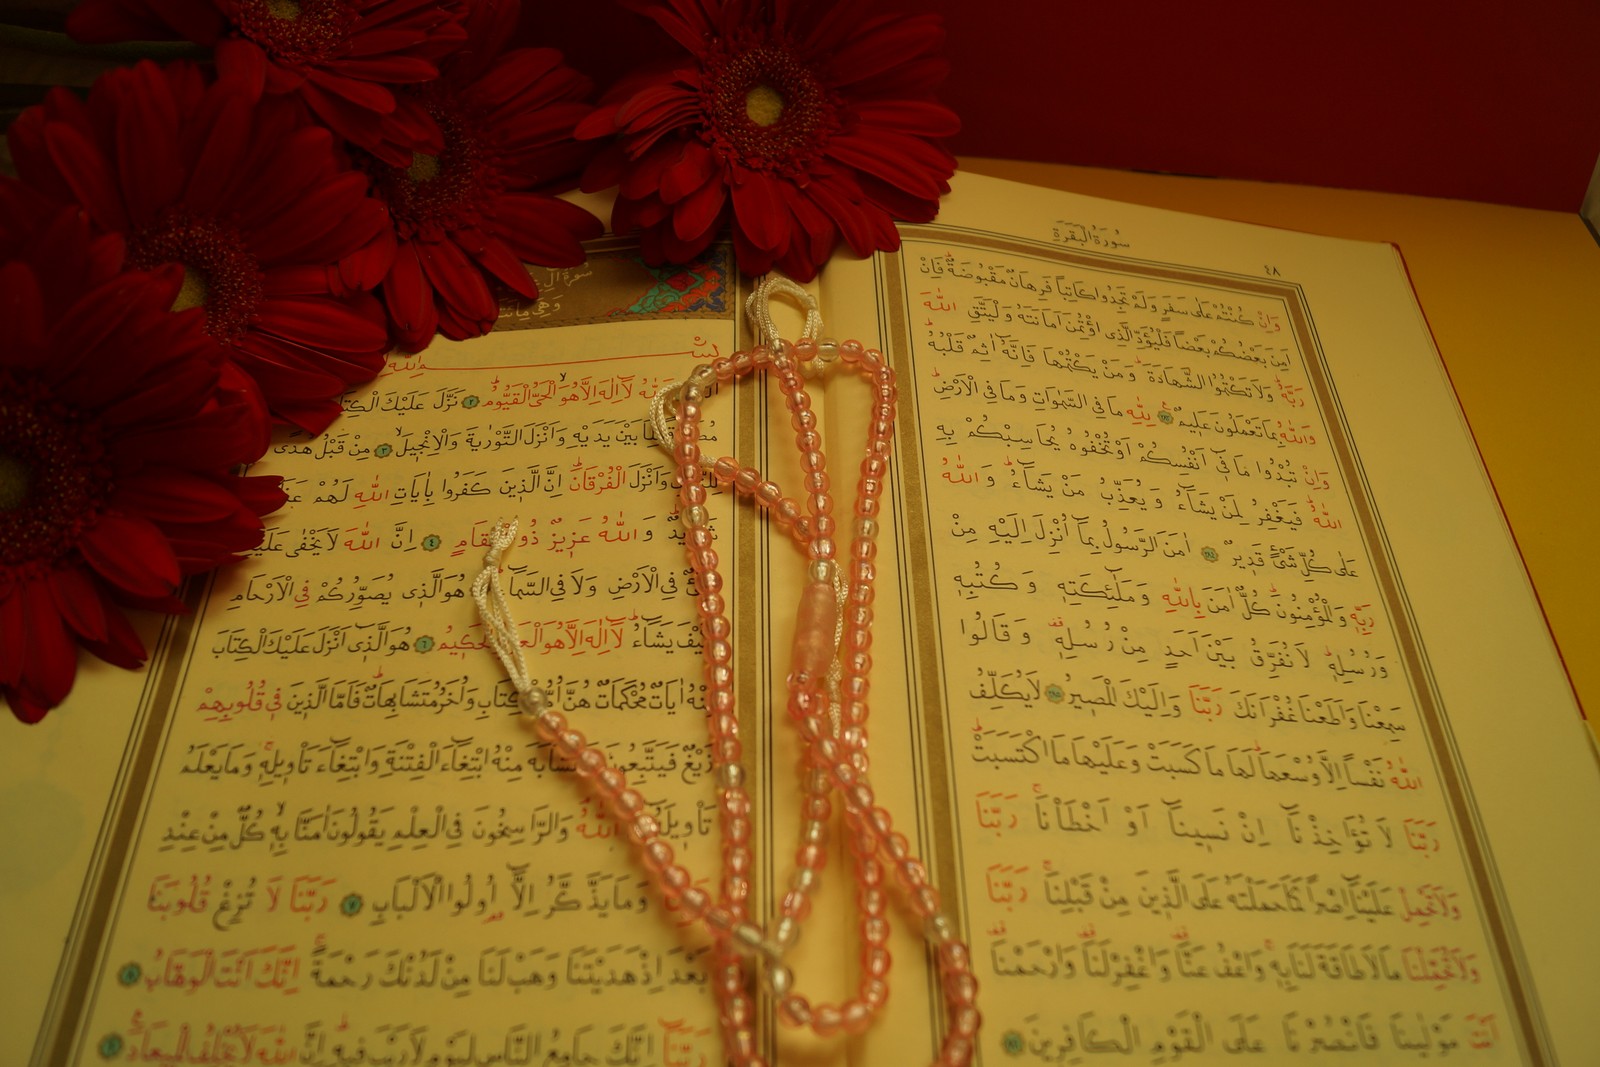 سُورَةُ الْبَقَرَةِ
٤٨
وَاِنْ كُنْتُمْ عَلٰى سَفَرٍ وَلَمْ تَجِدُوا كَاتِباً فَرِهَانٌ مَقْبُوضَةٌۜ فَاِنْ
اَمِنَ بَعْضُكُمْ بَعْضاً فَلْيُؤَدِّ الَّذِي اؤْتُمِنَ اَمَانَتَهُ وَلْيَتَّقِ اللّٰهَ
رَبَّهُۜ وَلَا تَكْتُمُوا الشَّهَادَةَۜ وَمَنْ يَكْتُمْهَا فَاِنَّهُٓ اٰثِمٌ قَلْبُهُۜ
وَاللّٰهُ بِمَا تَعْمَلُونَ عَلِيمٌ۟ لِلّٰهِ مَا فِي السَّمٰوَاتِ وَمَا فِي الْاَرْضِۜ
وَاِنْ تُبْدُوا مَا فِٓي اَنْفُسِكُمْ اَوْ تُخْفُوهُ يُحَاسِبْكُمْ بِهِ
اللّٰهُۜ فَيَغْفِرُ لِمَنْ يَشَٓاءُ وَيُعَذِّبُ مَنْ يَشَٓاءُۜ وَاللّٰهُ
عَلٰى كُلِّ شَيْءٍ قَدِيرٌ اٰمَنَ الرَّسُولُ بِمَٓا اُنْزِلَ اِلَيْهِ مِنْ
رَبِّهٖ وَالْمُؤْمِنُونَۜ كُلٌّ اٰمَنَ بِاللّٰهِ وَمَلٰٓئِكَتِهٖ وَكُتُبِهٖ
وَرُسُلِهٖۜ لَا نُفَرِّقُ بَيْنَ اَحَدٍ مِنْ رُسُلِهٖ وَقَالُوا
سَمِعْنَا وَاَطَعْنَا غُفْرَانَكَ رَبَّنَا وَاِلَيْكَ الْمَصِيرُ لَا يُكَلِّفُ
اللّٰهُ نَفْساً اِلَّا وُسْعَهَاۜ لَهَا مَا كَسَبَتْ وَعَلَيْهَا مَا اكْتَسَبَتْۜ
رَبَّنَا لَا تُؤَاخِذْنَٓا اِنْ نَسِينَٓا اَوْ اَخْطَاْنَاۚ رَبَّنَا
وَلَا تَحْمِلْ عَلَيْنَٓا اِصْراً كَمَا حَمَلْتَهُ عَلَى الَّذِينَ مِنْ قَبْلِنَاۚ رَبَّنَا
وَلَا تُحَمِّلْنَا مَا لَا طَاقَةَ لَنَا بِهٖۚ وَاعْفُ عَنَّا وَاغْفِرْ لَنَا وَارْحَمْنَا
اَنْتَ مَوْلٰينَا فَانْصُرْنَا عَلَى الْقَوْمِ الْكَافِرِينَ
سُورَةُ اٰلِ
وَهِيَ مِائَتَا
اللّٰهُ لَٓا اِلٰهَ اِلَّا هُوَۙ الْحَيُّ الْقَيُّومُۜ ٢ نَزَّلَ عَلَيْكَ الْكِتَا
بَيْنَ يَدَيْهِ وَاَنْزَلَ التَّوْرٰيةَ وَالْاِنْجِيلَۙ ٣ مِنْ قَبْلُ هُدًى
وَاَنْزَلَ الْفُرْقَانَۜ اِنَّ الَّذِينَ كَفَرُوا بِاٰيَاتِ اللّٰهِ لَهُمْ
شَدِيدٌۜ وَاللّٰهُ عَزِيزٌ ذُو انْتِقَامٍ ٤ اِنَّ اللّٰهَ لَا يَخْفٰى عَلَيْهِ
فِي الْاَرْضِ وَلَا فِي السَّمَٓاءِ هُوَ الَّذِي يُصَوِّرُكُمْ فِي الْاَرْحَامِ
كَيْفَ يَشَٓاءُۜ لَٓا اِلٰهَ اِلَّا هُوَ الْعَزِيزُ الْحَكِيمُ ٦ هُوَ الَّذِٓي اَنْزَلَ عَلَيْكَ الْكِتَابَ
مِنْهُ اٰيَاتٌ مُحْكَمَاتٌ هُنَّ اُمُّ الْكِتَابِ وَاُخَرُ مُتَشَابِهَاتٌۜ فَاَمَّا الَّذِينَ فِي قُلُوبِهِمْ
زَيْغٌ فَيَتَّبِعُونَ مَا تَشَابَهَ مِنْهُ ابْتِغَٓاءَ الْفِتْنَةِ وَابْتِغَٓاءَ تَاْوِيلِهٖۚ وَمَا يَعْلَمُ
تَاْوِيلَهُٓ اِلَّا اللّٰهُۢ وَالرَّاسِخُونَ فِي الْعِلْمِ يَقُولُونَ اٰمَنَّا بِهٖۙ كُلٌّ مِنْ عِنْدِ
رَبِّنَاۚ وَمَا يَذَّكَّرُ اِلَّٓا اُو۬لُوا الْاَلْبَابِ ٧ رَبَّنَا لَا تُزِغْ قُلُوبَنَا
بَعْدَ اِذْ هَدَيْتَنَا وَهَبْ لَنَا مِنْ لَدُنْكَ رَحْمَةًۚ اِنَّكَ اَنْتَ الْوَهَّابُ ٨
رَبَّنَٓا اِنَّكَ جَامِعُ النَّاسِ لِيَوْمٍ لَا رَيْبَ فِيهِۜ اِنَّ اللّٰهَ لَا يُخْلِفُ الْمِيعَادَ۟